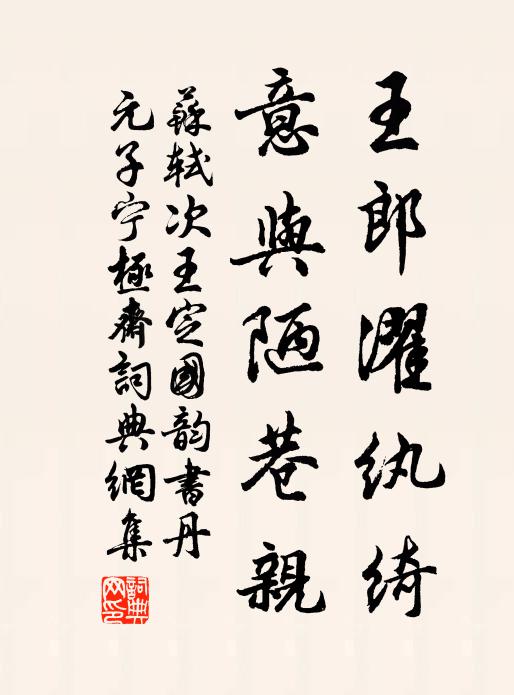 王郎濯紈綺
意與陋巷親
蘇軾次王定國韵書丹
元子宁極齋詞典網集
詞典網印